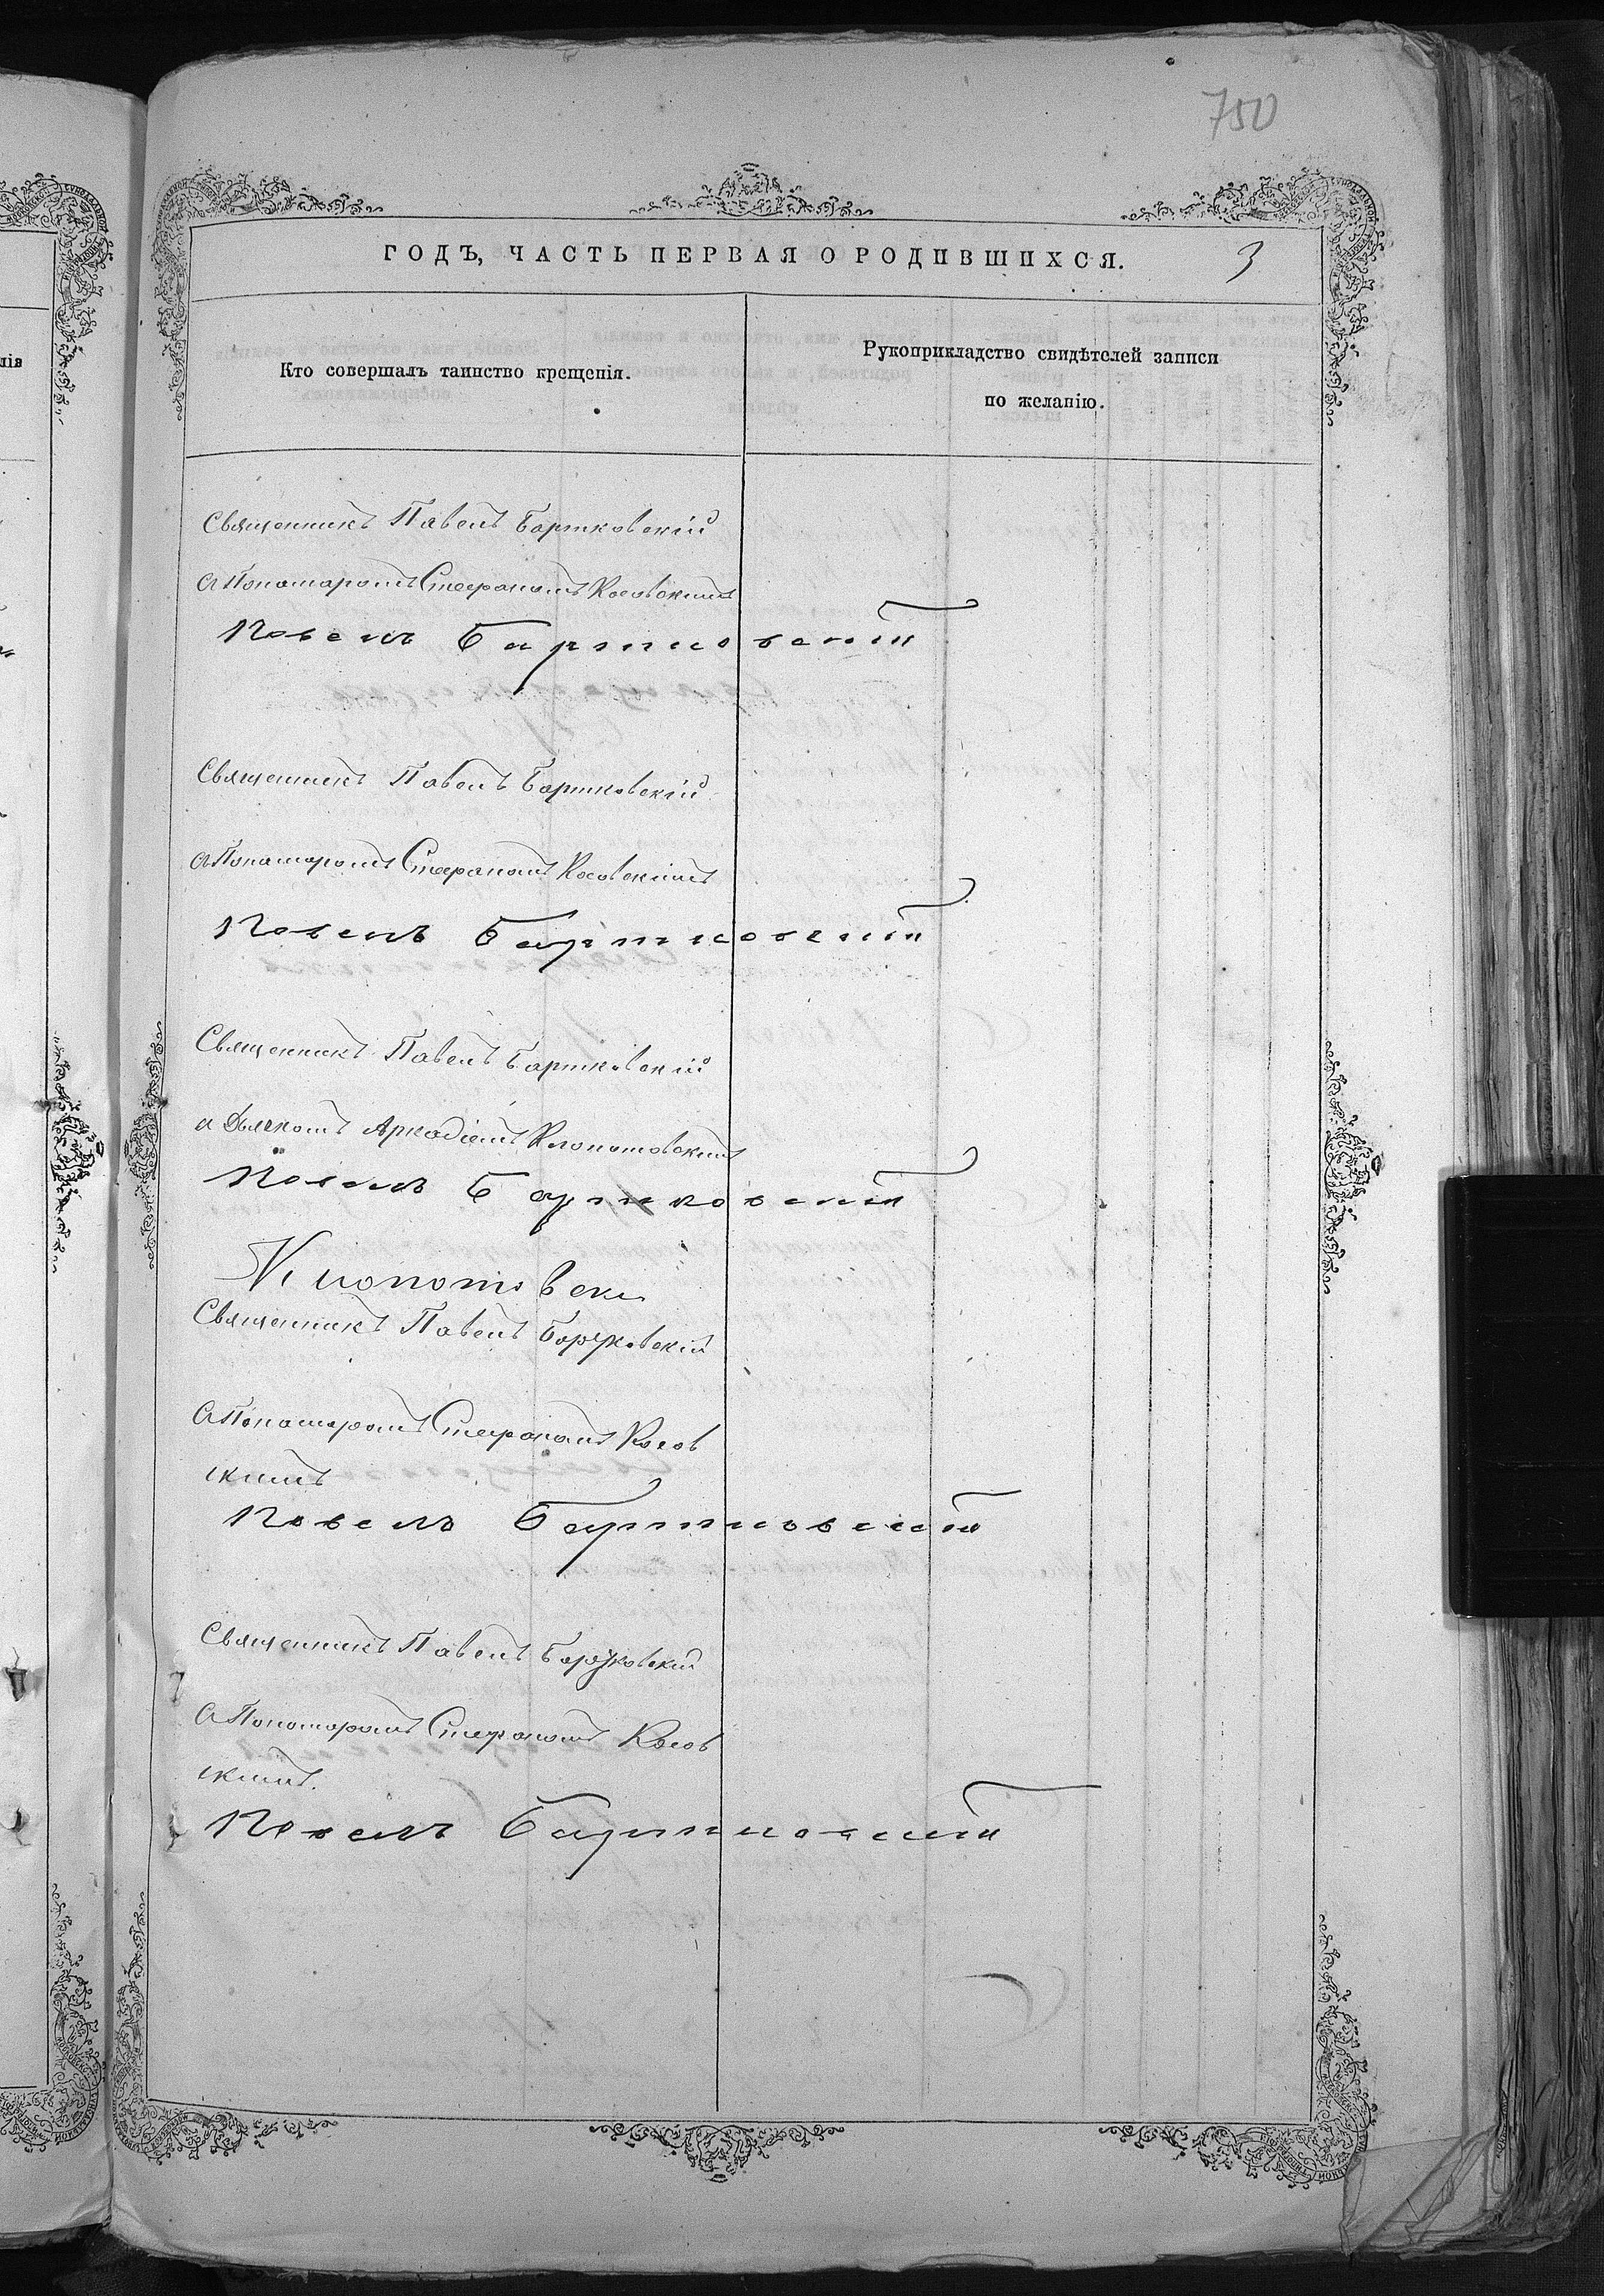 750
ГОДЪ, ЧАСТЬ ПЕРВАЯ О РОДИВШИХСЯ. 3
Кто совершалъ таинство крещенія.
Рукоприкладство свидѣтелей записи
по желанію.
Священникъ Павелъ Бартковскій
съ Пономаромъ Стефаномъ Косовскимъ
Павелъ Бартковскій
Священникъ Павелъ Бартковскій
съ Пономаромъ Стефаномъ Косовскимъ
Павелъ Бартковскій
Священникъ Павелъ Бартковскій
съ Дьячкомъ Аркадіемъ Клопотовскимъ
Павелъ Бартковскій
Клопотовски
Священникъ Павелъ Бартковскій
съ Пономаромъ Стефаномъ Косов
скимъ
Павелъ Бартковскій
Священникъ Павелъ Бартковскій
съ Пономаромъ Стефаномъ Косов
скимъ.
Павелъ Бартковскій